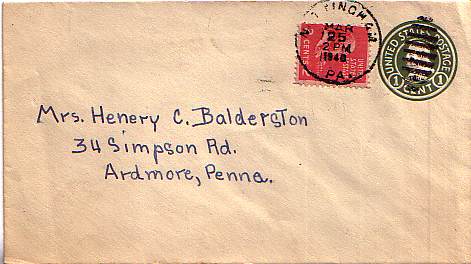 NOTTINGHAM
MAR
25
2 PM
1940
PA.
UNITED STATES POSTAGE
1 CENT 1
2 CENTS 2
Mrs. Henery C. Balderston
34 Simpson Rd.
Ardmore, Penna.